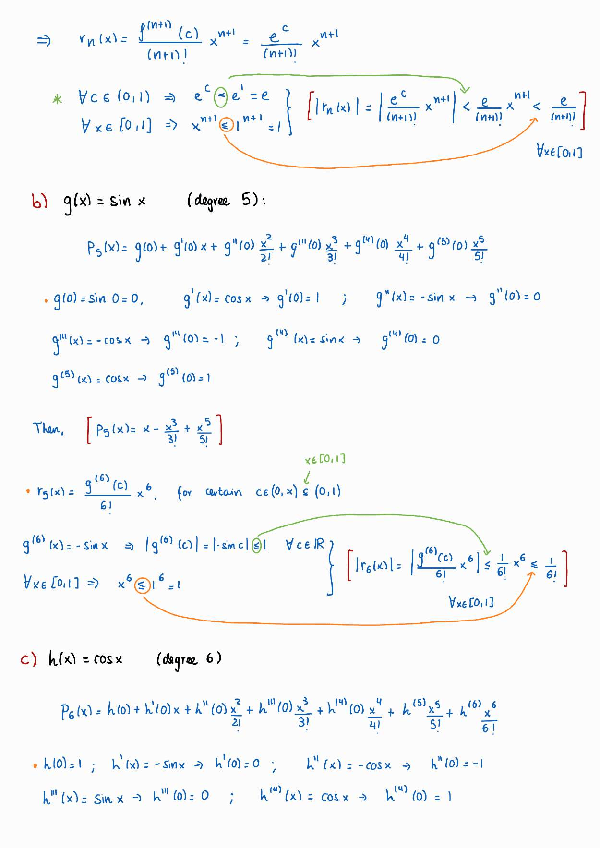 ⇒ rₙ(x) = f⁽ⁿ⁺¹⁾(c)/(n+1)! xⁿ⁺¹ = eᶜ/(n+1)! xⁿ⁺¹
* ∀c∈(0,1) ⇒ eᶜ < e¹ = e
∀x∈[0,1] ⇒ xⁿ⁺¹ ≤ 1ⁿ⁺¹ = 1 } [|rₙ(x)| = |eᶜ/(n+1)! xⁿ⁺¹| < e/(n+1)! xⁿ⁺¹ < e/(n+1)!]
∀x∈[0,1]
b) g(x) = sin x (degree 5):
P₅(x) = g(0) + g'(0) x + g''(0) x²/2! + g'''(0) x³/3! + g⁽⁴⁾(0) x⁴/4! + g⁽⁵⁾(0) x⁵/5!
• g(0) = sin 0 = 0, g'(x) = cos x → g'(0) = 1 ; g''(x) = -sin x → g''(0) = 0
g'''(x) = -cos x → g'''(0) = -1 ; g⁽⁴⁾(x) = sin x → g⁽⁴⁾(0) = 0
g⁽⁵⁾(x) = cos x → g⁽⁵⁾(0) = 1
Then, [P₅(x) = x - x³/3! + x⁵/5!]
x∈[0,1]
• r₅(x) = g⁽⁶⁾(c)/6! x⁶, for certain c∈(0,x) ⊆ (0,1)
g⁽⁶⁾(x) = -sin x ⇒ |g⁽⁶⁾(c)| = |-sin c| ≤ 1 ∀c∈ℝ
∀x∈[0,1] ⇒ x⁶ ≤ 1⁶ = 1 } [|r₆(x)| = |g⁽⁶⁾(c)/6! x⁶| ≤ 1/6! x⁶ ≤ 1/6!]
∀x∈[0,1]
c) h(x) = cos x (degree 6)
P₆(x) = h(0) + h'(0) x + h''(0) x²/2! + h'''(0) x³/3! + h⁽⁴⁾(0) x⁴/4! + h⁽⁵⁾ x⁵/5! + h⁽⁶⁾ x⁶/6!
• h(0) = 1 ; h'(x) = -sin x → h'(0) = 0 ; h''(x) = -cos x → h''(0) = -1
h'''(x) = sin x → h'''(0) = 0 ; h⁽⁴⁾(x) = cos x → h⁽⁴⁾(0) = 1